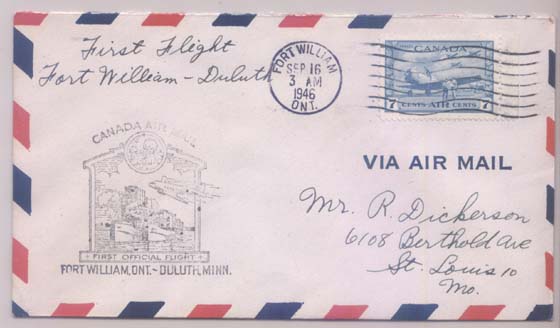 First Flight
Fort William - Duluth
FORT WILLIAM
SEP 16
3 AM
1946
ONT.
CANADA
7 CENTS AIR CENTS 7
CANADA AIR MAIL
VIA AIR MAIL
Mr. R. Dickerson
6108 Berthold Ave
St. Louis 10
Mo.
FIRST OFFICIAL FLIGHT
FORT WILLIAM, ONT. ~ DULUTH, MINN.